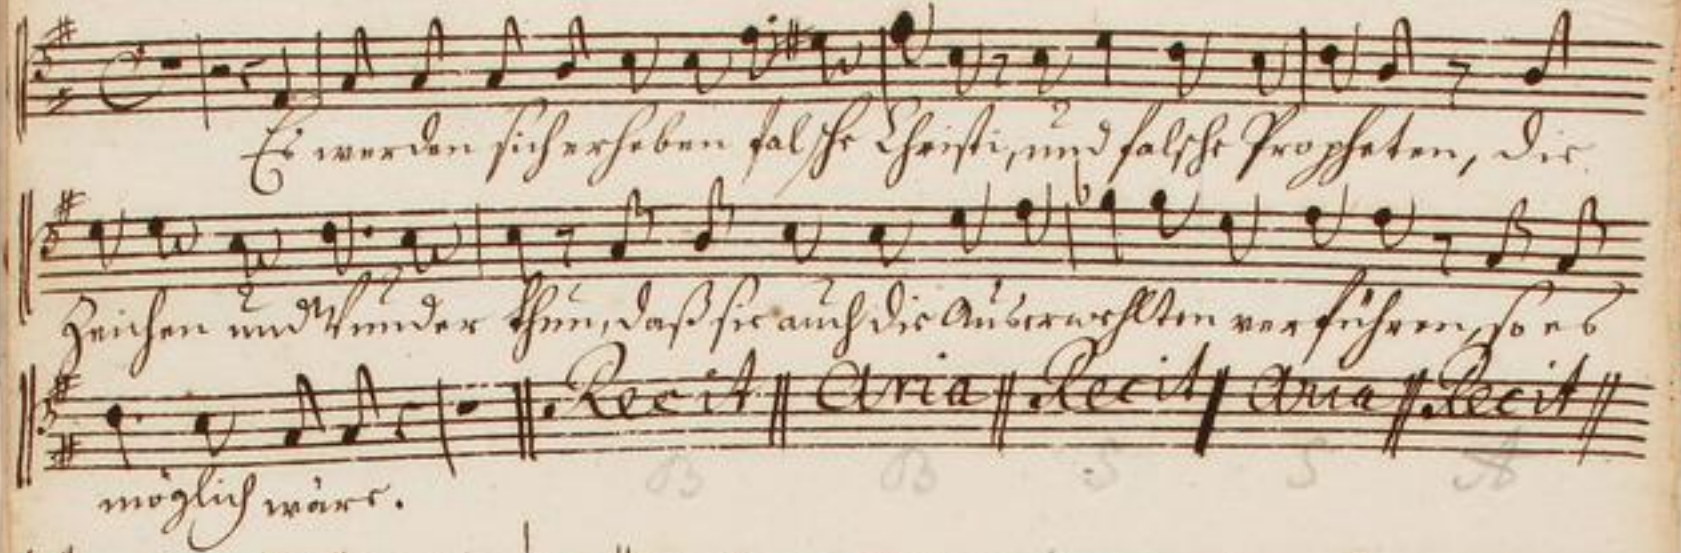 Es werden sich erheben falsche Christi, und falsche Propheten, die
Zeichen und Wunder thun, daß sie auch die Auserwehlten verführen, so es
Recit Aria Recit Aria Recit
B B S S A
möglich wäre.